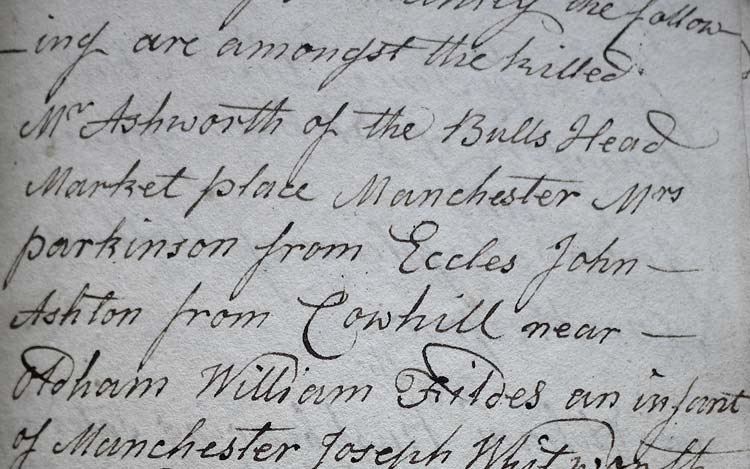 the follow-
-ing are amongst the killed
Mr Ashworth of the Bulls Head
Market place Manchester Mrs
parkinson from Eccles John —
Ashton from Cowhill near —
Oldham William Fildes an infant
of Manchester Joseph Whitworth